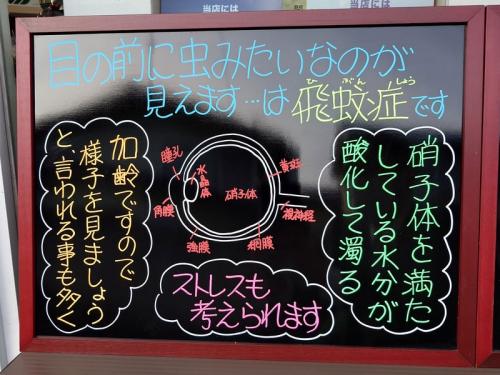 当店には
当店には
目の前に虫みたいなのが
見えます…は飛蚊症です
ひ ぶん しょう
硝子体を満た
している水分が
酸化して濁る
瞳孔
水晶体
角膜
硝子体
黄斑
視神経
強膜
網膜
加齢ですので
様子を見ましょう
と、言われる事も多く
ストレスも
考えられます